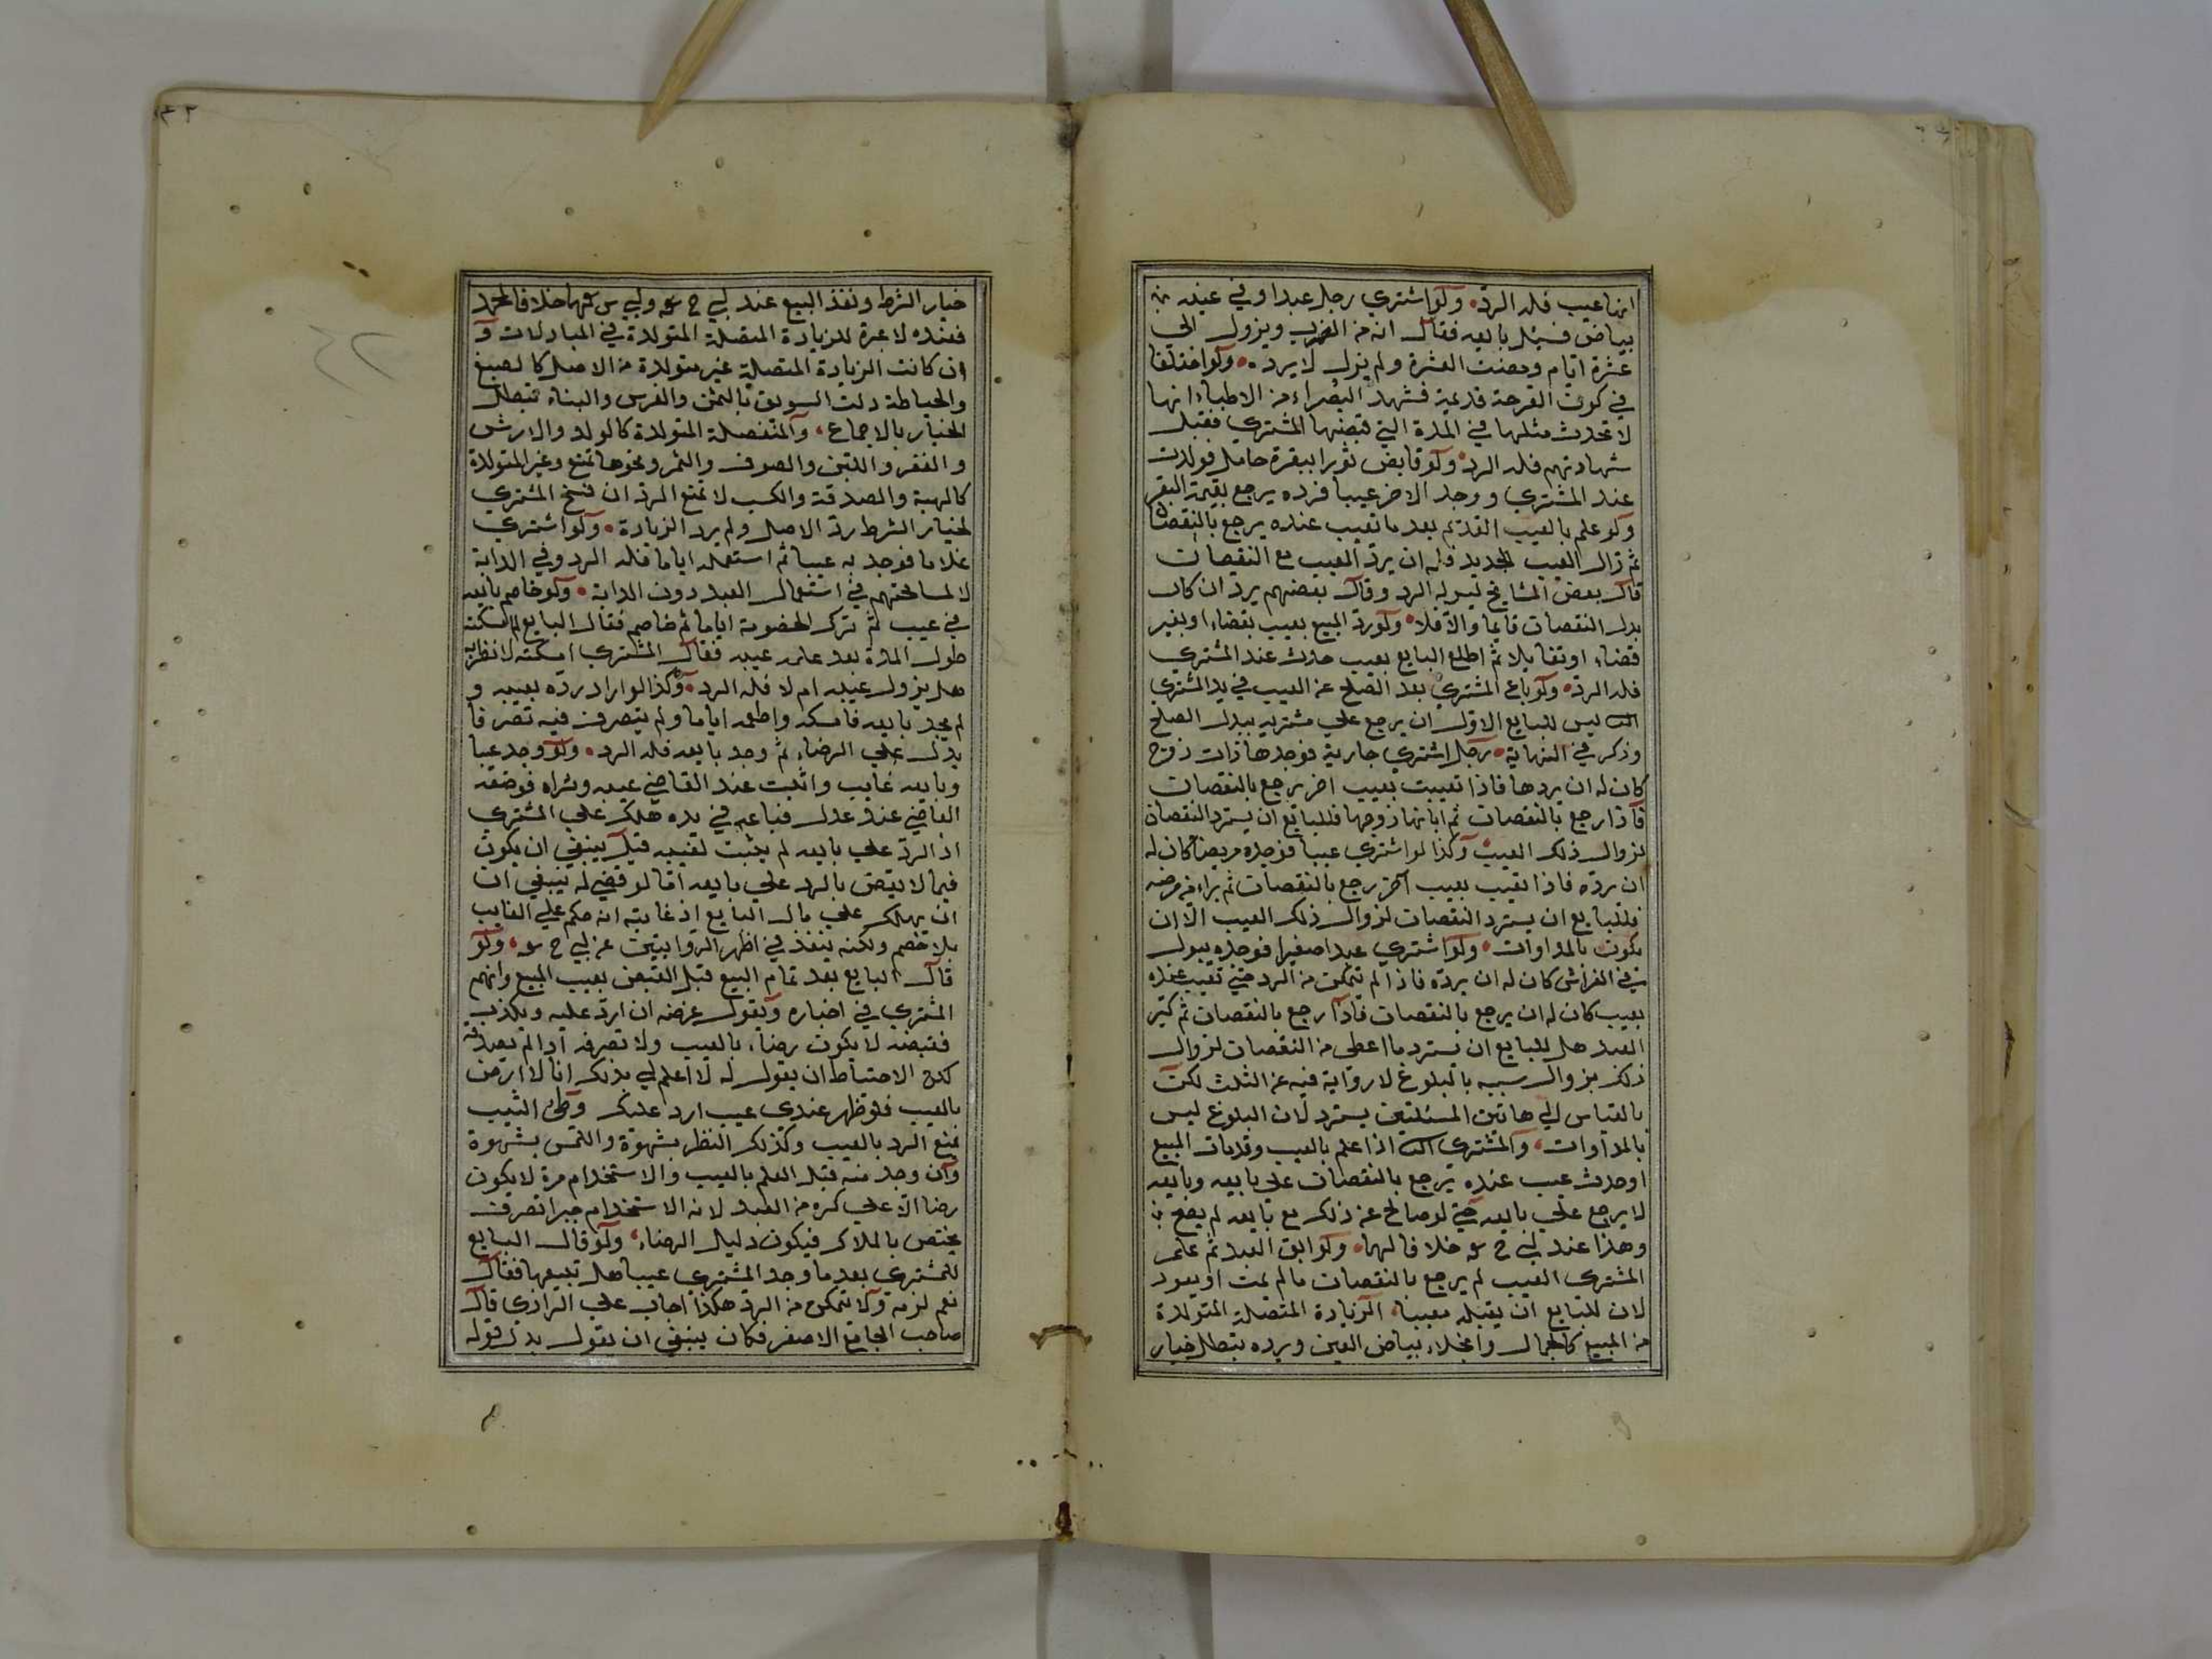 انها عيب فله الرد ولو اشتري رجل عبدا وفي عينه
بياض فسئل بايعه فقال انه من الضرب ويزول الى
عشرة ايام ومضت العشرة ولم يزل لا يرده ولو اختلفا
في كون القرحة قديمة فشهد البصراء من الاطباء انها
لا تحدث مثلها في المدة التي قبضها المشتري فقبل
شهادتهم فله الرد ولو قابض ثورا ببقرة حامل فولدت
عند المشتري ووجد الاخر عيبا فرده يرجع بقيمة البقر
ولو علم بالعيب القديم بعد ما تعيب عنده يرجع بالنقصان
ثم زال العيب الجديد فله ان يرد المعيب مع النقصان
قال بعض المشايخ ليس له الرد وقال بعضهم يرد ان كان
بدل النقصان قايما والا فلا ولو رد المبيع بعيب بقضاء او بغير
قضاء او تقايلا ثم اطلع البايع بعيب حادث عند المشتري
فله الرد ولو باع المشتري بعد الصلح عن العيب في يد المشتري
ليس للبايع الاول ان يرجع علي مشتريه ببدل الصلح
وذكر في النهاية رجل اشتري جارية فوجدها ذات زوج
كان له ان يردها فاذا تعيبت بعيب اخر يرجع بالنقصان
فاذا رجع بالنقصان ثم ابانها زوجها فللبايع ان يسترد النقصان
لزوال ذلك العيب وكذا لو اشتري عبدا فوجده مريضا كان له
ان يرده فاذا تعيب بعيب آخر رجع بالنقصان ثم براء من مرضه
فللبايع ان يسترد النقصان لزوال ذلك العيب الا ان
يكون بالمداوات ولو اشتري عبدا صغيرا فوجده يبول
في الفراش كان له ان يرده فاذا لم يتمكن من الرد حتي تعيب عنده
بعيب كان له ان يرجع بالنقصان فاذا رجع بالنقصان ثم كبر
العبد هل للبايع ان يسترد ما اعطى من النقصان لزوال
ذلك بزوال سببه بالبلوغ لا رواية فيه عن الثلث لكن
بالقياس الي هاتين المسئلتين يسترد لان البلوغ ليس
بالمداوات والمشتري اذا علم بالعيب وقد مات المبيع
او حدث عيب عنده يرجع بالنقصان علي بايعه وبايعه
لا يرجع علي بايعه حتي لو صالح عن ذلك مع بايعه لم يصح
وهذا عند ابي ح خلافا لهما ولو ابق العبد ثم علم
المشتري العيب لم يرجع بالنقصان ما لم يمت او يعود
لان للبايع ان يقبله معيبا الزيادة المتصلة المتولدة
من المبيع كالجمال وانجلاء بياض العين ويرده تبطل خيار
خيار الشرط ونفذ البيع عند ابي ح وابي س خلافا لمحمد
فعنده لا عبرة للزيادة المتصلة المتولدة في المبادلات و
ان كانت الزيادة المتصلة غير متولدة من الاصل كالصبغ
والخياطة ولت السويق بالسمن والغرس والبناء تبطل
الخيار بالاجماع والمنفصلة المتولدة كالولد والارش
والعقر واللبن والصوف والثمر ونحوها تمنع وغير المتولدة
كالهبة والصدقة والكسب لا تمنع الرد ان فسخ المشتري
لخيار الشرط رد الاصل ولم يرد الزيادة ولو اشتري
غلاما فوجد به عيبا ثم استعمله اياما فله الرد وفي الدابة
لا لمسامحتهم في استعمال العبد دون الدابة ولو خاصم بايعه
في عيب ثم ترك الخصومة اياما ثم خاصم فقال البايع لم امسكته
طول المدة بعد علم عيبه فقال المشتري امسكته لانظر انه
هل يزول عيبه ام لا فله الرد وكذا لو اراد رده بعيبه و
لم يجد بايعه فامسكه واطعمه اياما ولم يتصرف فيه تصرفا
يدل علي الرضاء ثم وجد بايعه فله الرد ولو وجد عيبا
وبايعه غايب واثبت عند القاضي عيبه وشراه فوضعه
القاضي عند عدل فباعه في يده هلك علي المشتري
اذ الرد علي بايعه لم يثبت لغيبه قيل ينبغي ان يكون
فيما لا يقض بالرد علي بايعه اما لو قضي له ينبغي ان
ان يهلك علي مال البايع اذ غايته انه حكم علي الغايب
بلا خصم ولكنه ينفذ في اظهر الروايتين عن ابي ح ولو
قال البايع بعد تمام البيع قبل القبض بعيب المبيع واتهم
المشتري في اخباره ويقول غرضه ان ارد عليه ويكذب
فقبضه لا يكون رضاء بالعيب ولا تصرفه اذا لم يصدقه
لكن الاحتياط ان يقول له لا اعلم لي بذلك انا لا ارضى
بالعيب فلو ظهر عندي عيب ارد عليك وطئ الثيب
تمنع الرد بالعيب وكذلك النظر بشهوة واللمس بشهوة
وان وجد منه قبل العلم بالعيب والاستخدام مرة لا يكون
رضا الا علي كره من العبد لانه الاستخدام جبرا تصرف
يختص بالملاك فيكون دليل الرضاء ولو قال البايع
للمشتري بعد ما وجد المشتري عيبا هل تبيعها فقال
نعم لزمه ولا يتمكن من الرد هكذا اجاب علي الرازي قال
صاحب الجامع الاصغر فكان ينبغي ان يقول بدل قوله